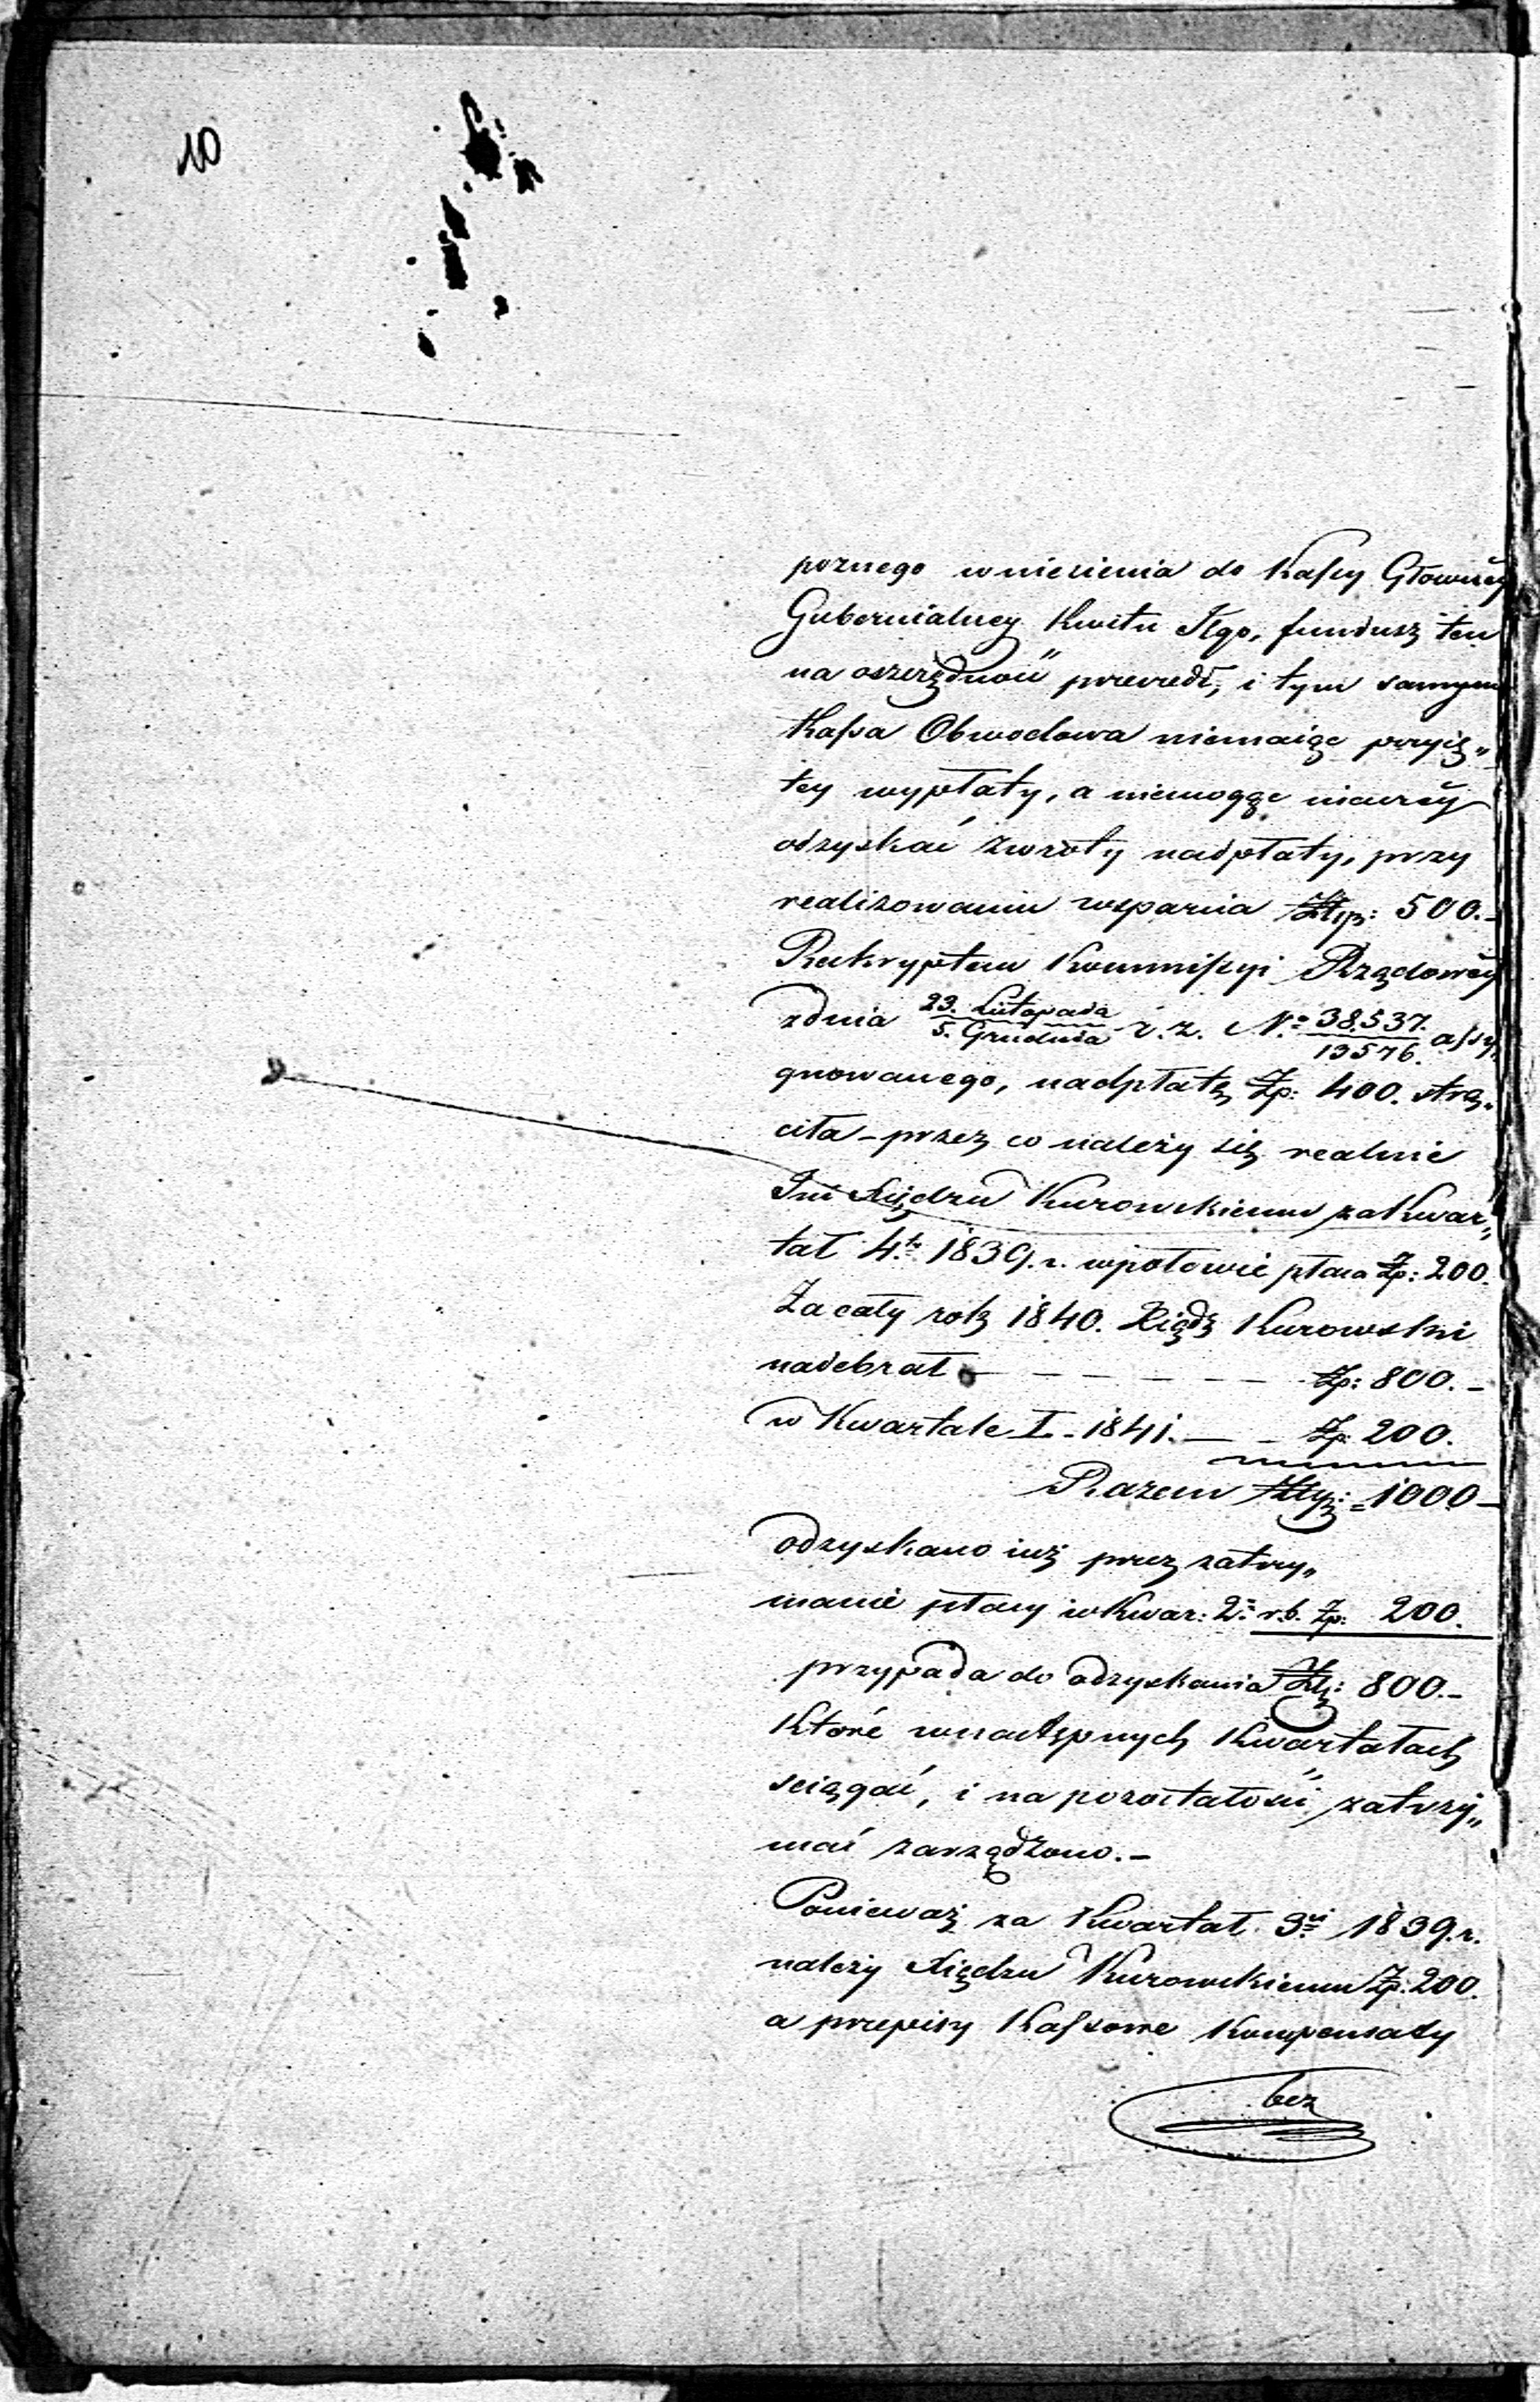 10
poznego wniesienia do Kassy Główney
Gubernialney Kwitu Jłgo, fundusz ten
na oszczędność przeszedł, i tym samym
Kassa Obwodowa niemaiąc przyię„
tey wypłaty, a niemogąc inaczey
odzyskać zwroty nadpłaty, przy
realizowaniu wsparcia Złłp: 500.-
Reskryptem Kommissyi Rządowey
zdnia 23. Listopada / 5. Grudnia r. z. No 38.537. / 13576. assy„
gnowanego, nadpłatę Zp: 400. strą„
ciła – przez co należy się realnie
Xiędzu Kurowskiemu za Kwar„
tał 4.ty 1839. r. wpołowie płaca Zp: 200.
Za cały rok 1840. Xiądz Kurowski
nadebrał — — — — — Zp: 800.-
w Kwartale I. 1841. — — Zp. 200.
Razem Złłp: = 1000 –
odzyskano iuż przez zatrzy„
manie płacy w Kwar: 2.m r.b. Zp: 200.
przypada do odzyskania Złł: 800.-
Które wnastępnych Kwartałach
sciągać, i na pozostałość zatrzy„
mać zarządzono.-
Ponieważ za Kwartał 3ci 1839. r.
należy Xiędzu Kurowskiemu Zp. 200.
a przepisy Kassowe Kompensaty
bez